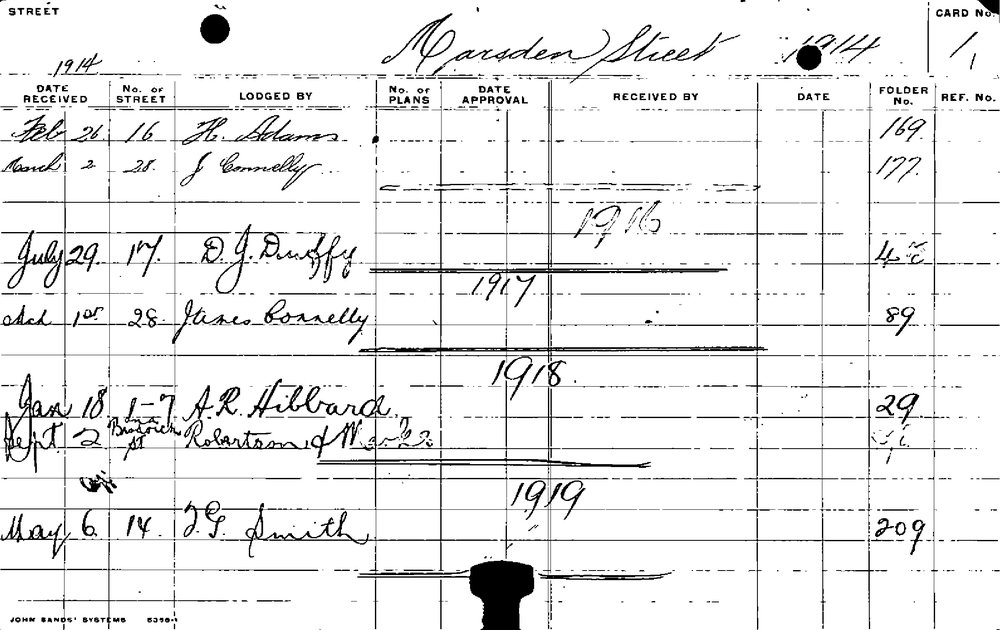 STREET
CARD No.
Marsden Street 1914
1,
1914
DATE RECEIVED No. of STREET LODGED BY No. of PLANS DATE APPROVAL RECEIVED BY DATE FOLDER No. REF. No.
Feb 26 16 H. Adams 169
March 2 28. J Connelly 177.
1916
July 29. 17. D. J. Duffy
1917
Mch 1st 28. James Connelly 89
1918.
Jan 18 1-7 A. R. Hibbard. 29
Sept 2 St Robertson &
1919
May 6. 14. Smith 209
JOHN SANDS' SYSTEMS